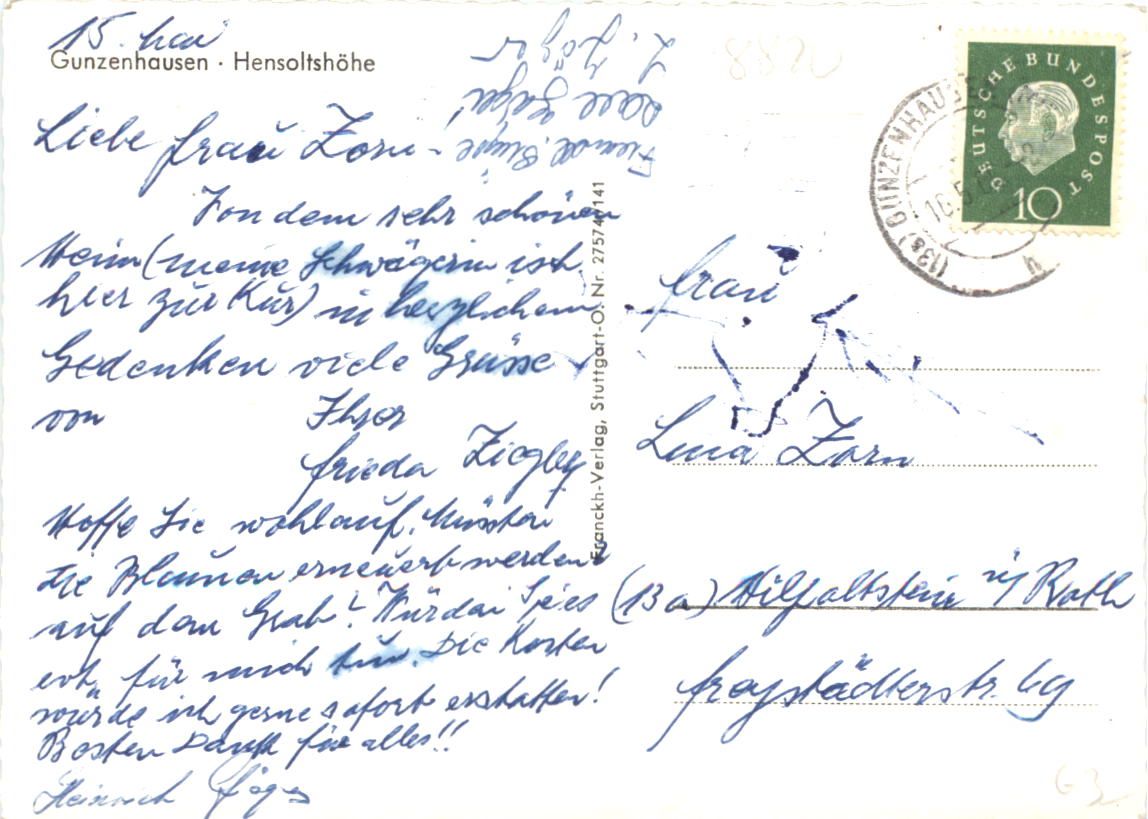 15. Mai
Gunzenhausen · Hensoltshöhe
Liebe Frau Zorn!
Von dem sehr schönen
Heim (meine Schwägerin ist
hier zur Kur) in herzlichem
Gedenken viele Grüsse
von Ihrer
Frieda Ziegler
Hoffe Sie wohlauf. Müssten
die Blumen erneuert werden
auf dem Grab? Würden Sie es
evt. für mich tun. Die Kosten
würde ich gerne sofort erstatten!
Besten Dank für alles!!
Heinrich Jäger
Freundl. Grüße
L. Jäger
Franckh-Verlag, Stuttgart-O. Nr. 27574/7141
DEUTSCHE BUNDESPOST
10
(13a) GUNZENHAUSEN
Frau
Lina Zorn
(13a) Hilpoltstein
Freystädterstr. 69